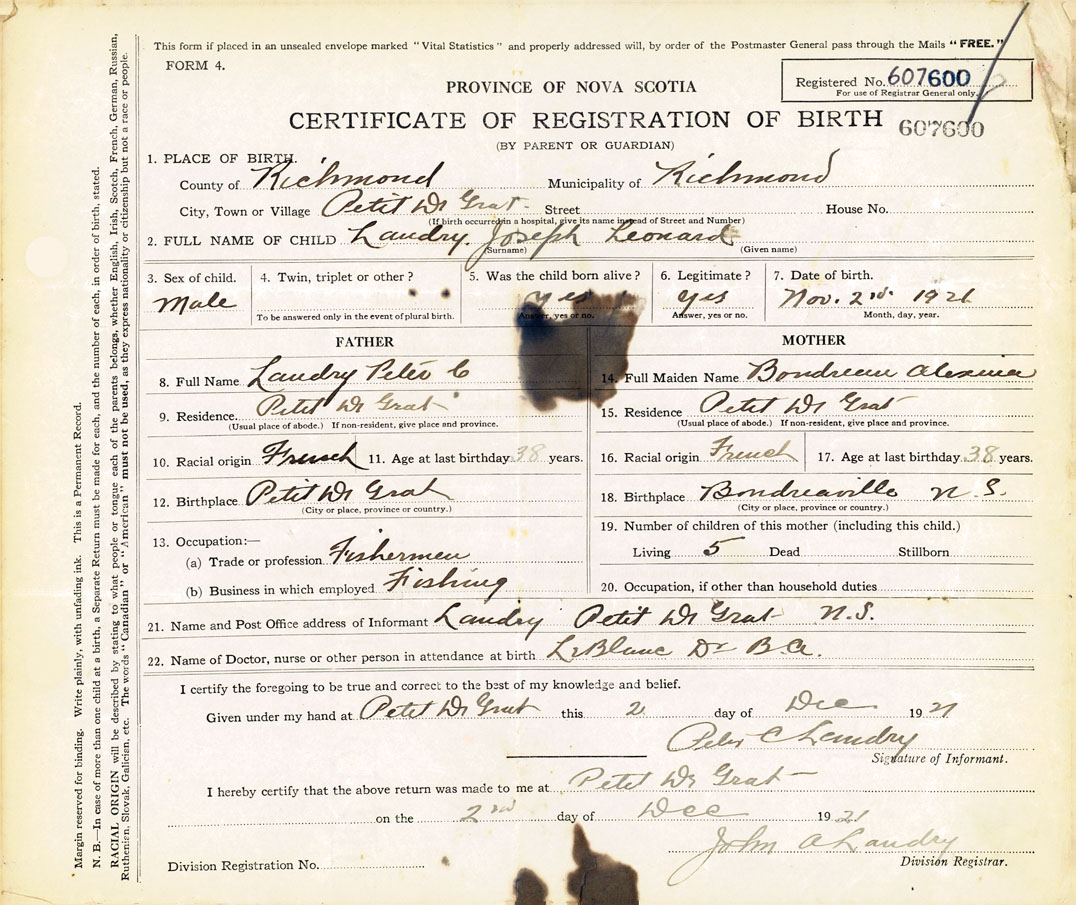 This form if placed in an unsealed envelope marked "Vital Statistics" and properly addressed will, by order of the Postmaster General pass through the Mails "FREE."
FORM 4.
Registered No. 607600
For use of Registrar General only.
PROVINCE OF NOVA SCOTIA
CERTIFICATE OF REGISTRATION OF BIRTH 607600
(BY PARENT OR GUARDIAN)
1. PLACE OF BIRTH.
County of Richmond Municipality of Richmond
City, Town or Village Petit De Grat Street House No.
(If birth occurred in a hospital, give its name instead of Street and Number)
2. FULL NAME OF CHILD Landry. Joseph Leonard
(Surname) (Given name)
3. Sex of child. 4. Twin, triplet or other? 5. Was the child born alive? 6. Legitimate? 7. Date of birth.
Male yes yes Nov. 2nd 1921
To be answered only in the event of plural birth. Answer, yes or no. Answer, yes or no. Month, day, year.
FATHER MOTHER
8. Full Name Landry Peter C 14. Full Maiden Name Bondreau
9. Residence. Petit De Grat 15. Residence Petit De Grat
(Usual place of abode.) If non-resident, give place and province. (Usual place of abode.) If non-resident, give place and province.
10. Racial origin French 11. Age at last birthday 38 years. 16. Racial origin French 17. Age at last birthday 38 years.
12. Birthplace Petit De Grat 18. Birthplace Bondreaville N.S.
(City or place, province or country.) (City or place, province or country.)
19. Number of children of this mother (including this child.)
13. Occupation:—
(a) Trade or profession Fishermen Living 5 Dead Stillborn
(b) Business in which employed Fishing 20. Occupation, if other than household duties
21. Name and Post Office address of Informant Landry Petit De Grat N.S.
22. Name of Doctor, nurse or other person in attendance at birth LeBlanc Dr B.A.
I certify the foregoing to be true and correct to the best of my knowledge and belief.
Given under my hand at Petit De Grat this 2 day of Dec 1921
Peter C Landry
Signature of Informant.
I hereby certify that the above return was made to me at Petit De Grat
on the 2nd day of Dec 1921
John A Landry
Division Registration No. Division Registrar.
Margin reserved for binding. Write plainly, with unfading ink. This is a Permanent Record.
N. B.—In case of more than one child at a birth, a Separate Return must be made for each, and the number of each, in order of birth, stated.
RACIAL ORIGIN will be described by stating to what people or tongue each of the parents belongs, whether English, Irish, Scotch, French, German, Russian,
Ruthenian, Slovak, Galician, etc. The words "Canadian" or "American" must not be used, as they express nationality or citizenship but not a race or people.